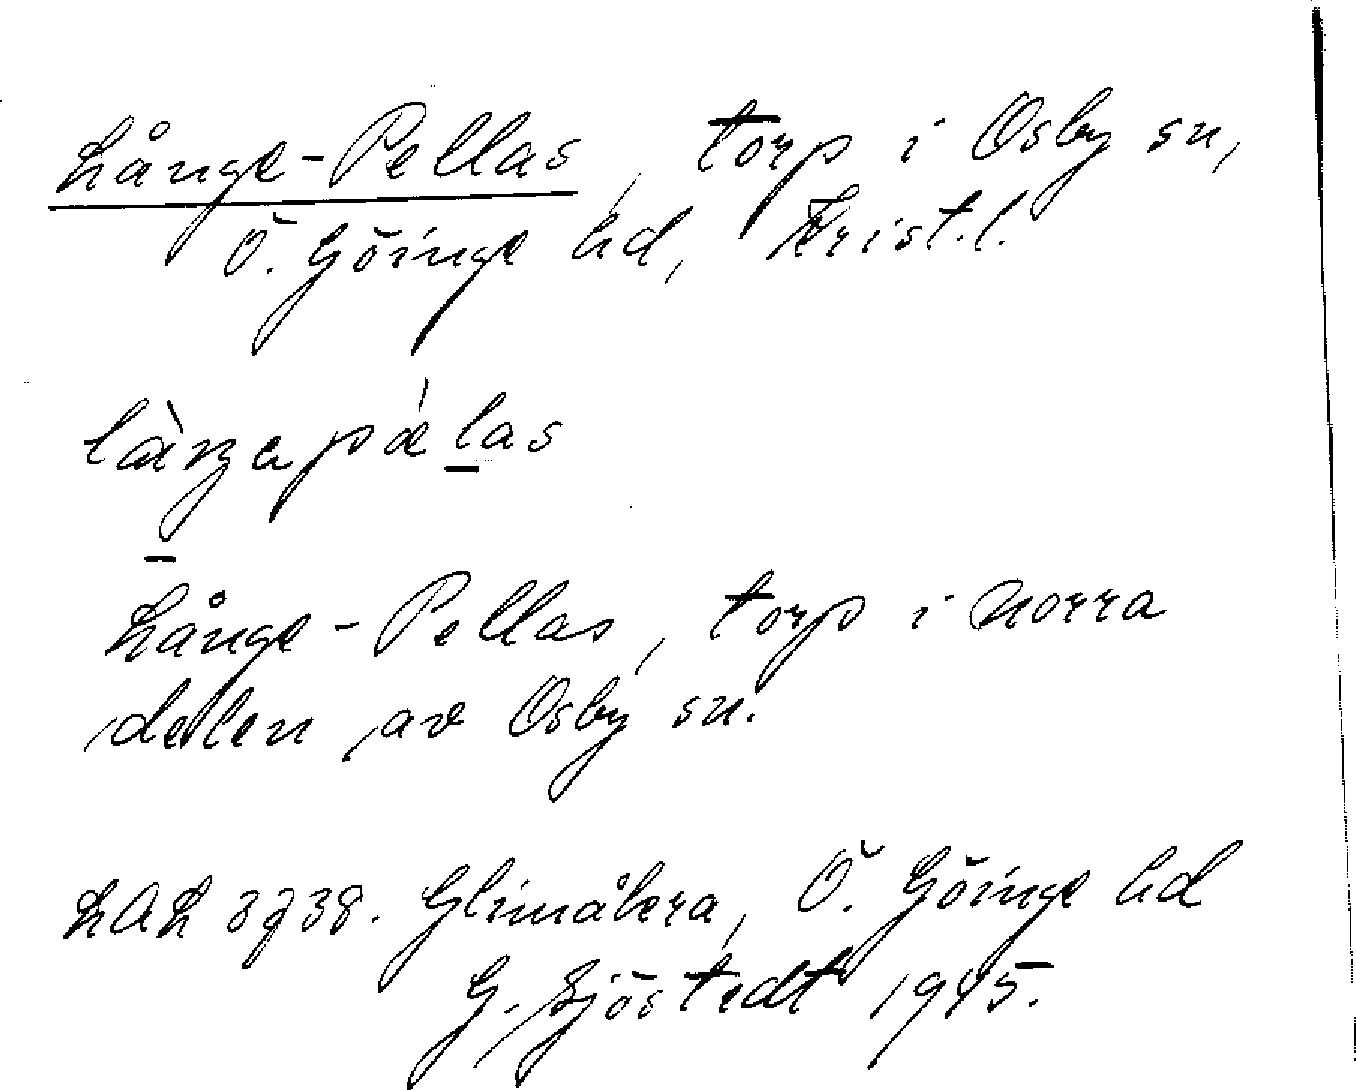 Långe-Pellas, torp i Osby sn,
Ö. Göinge hd, Krist.l.
làŋapǽlas
Långe-Pellas, torp i norra
delen av Osby sn.
LAL 3738. Glimåkra, Ö. Göinge hd
G. Sjöstedt 1945.